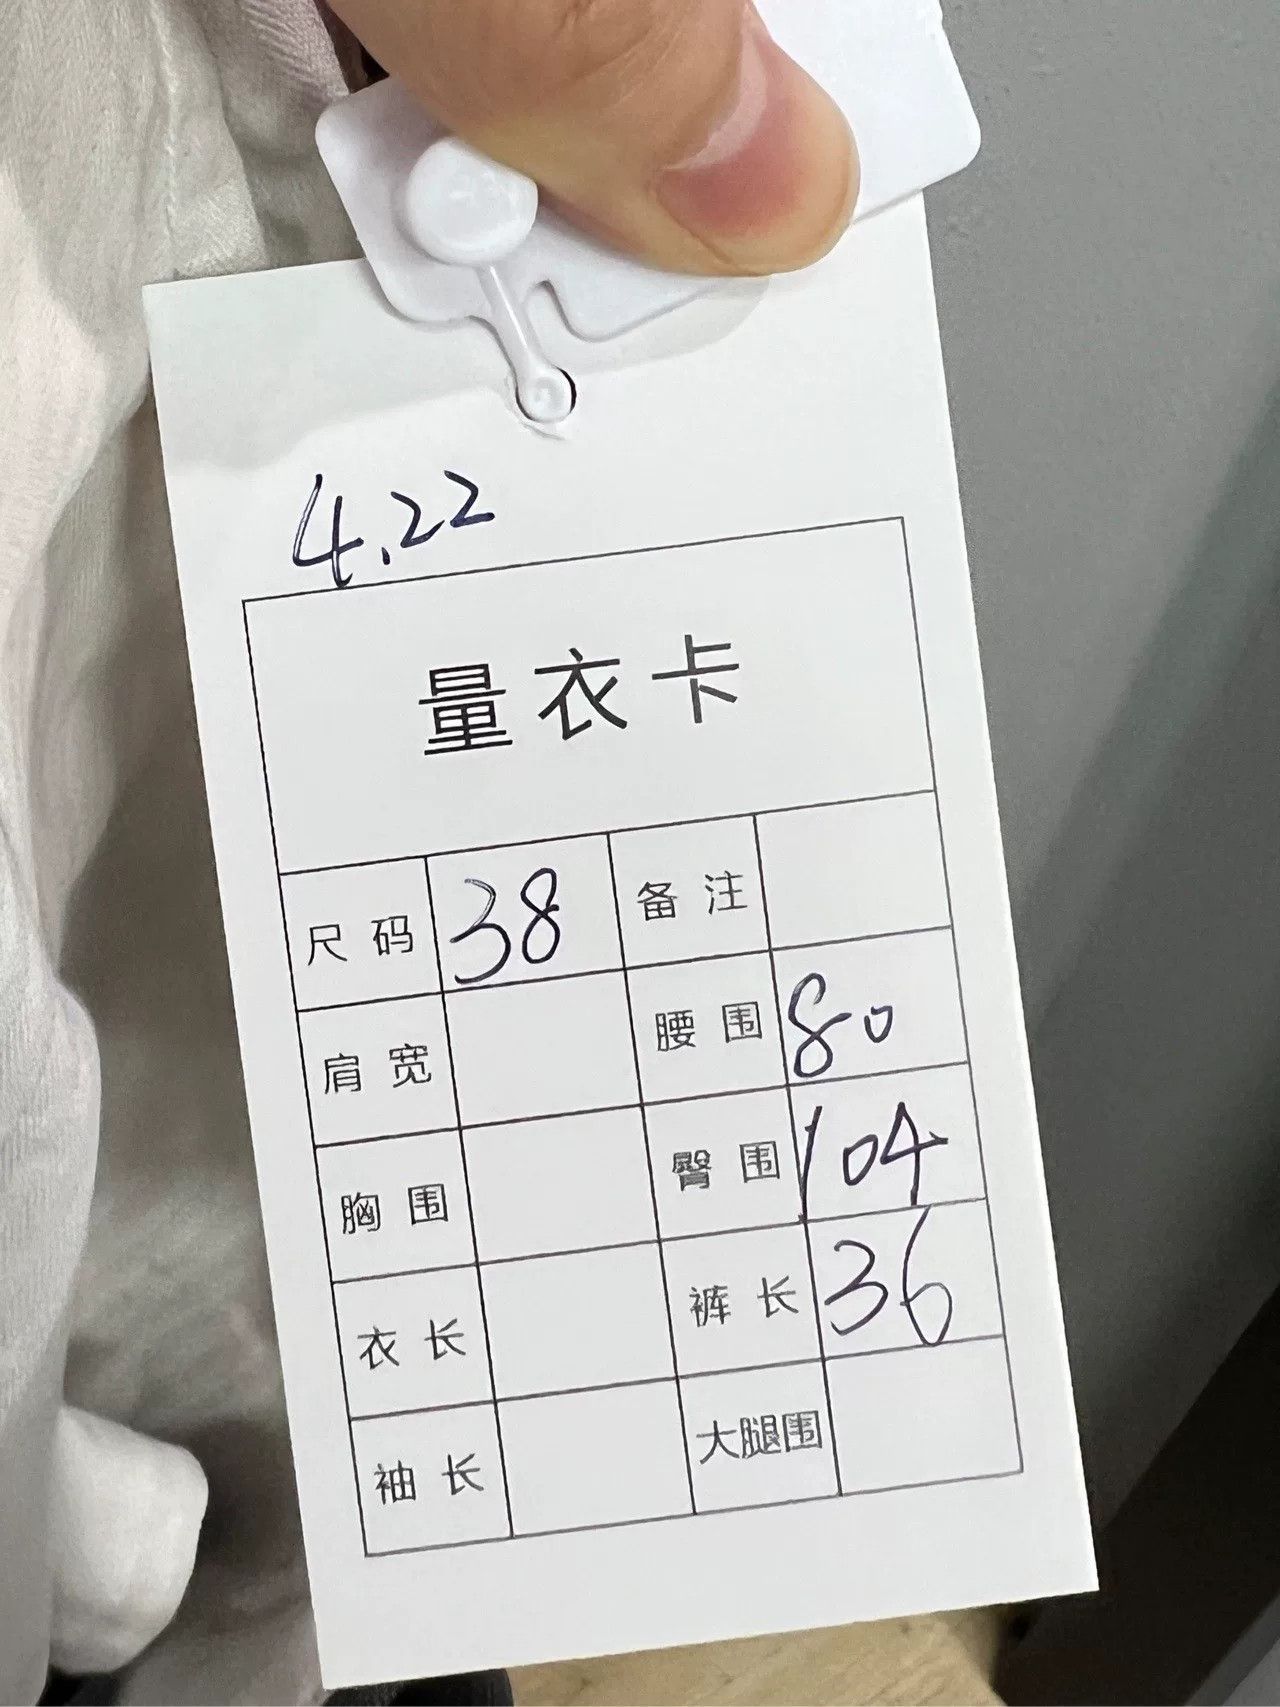 4.22
量衣卡
尺码 38 备注
肩宽 腰围 80
胸围 臀围 104
衣长 裤长 36
袖长 大腿围